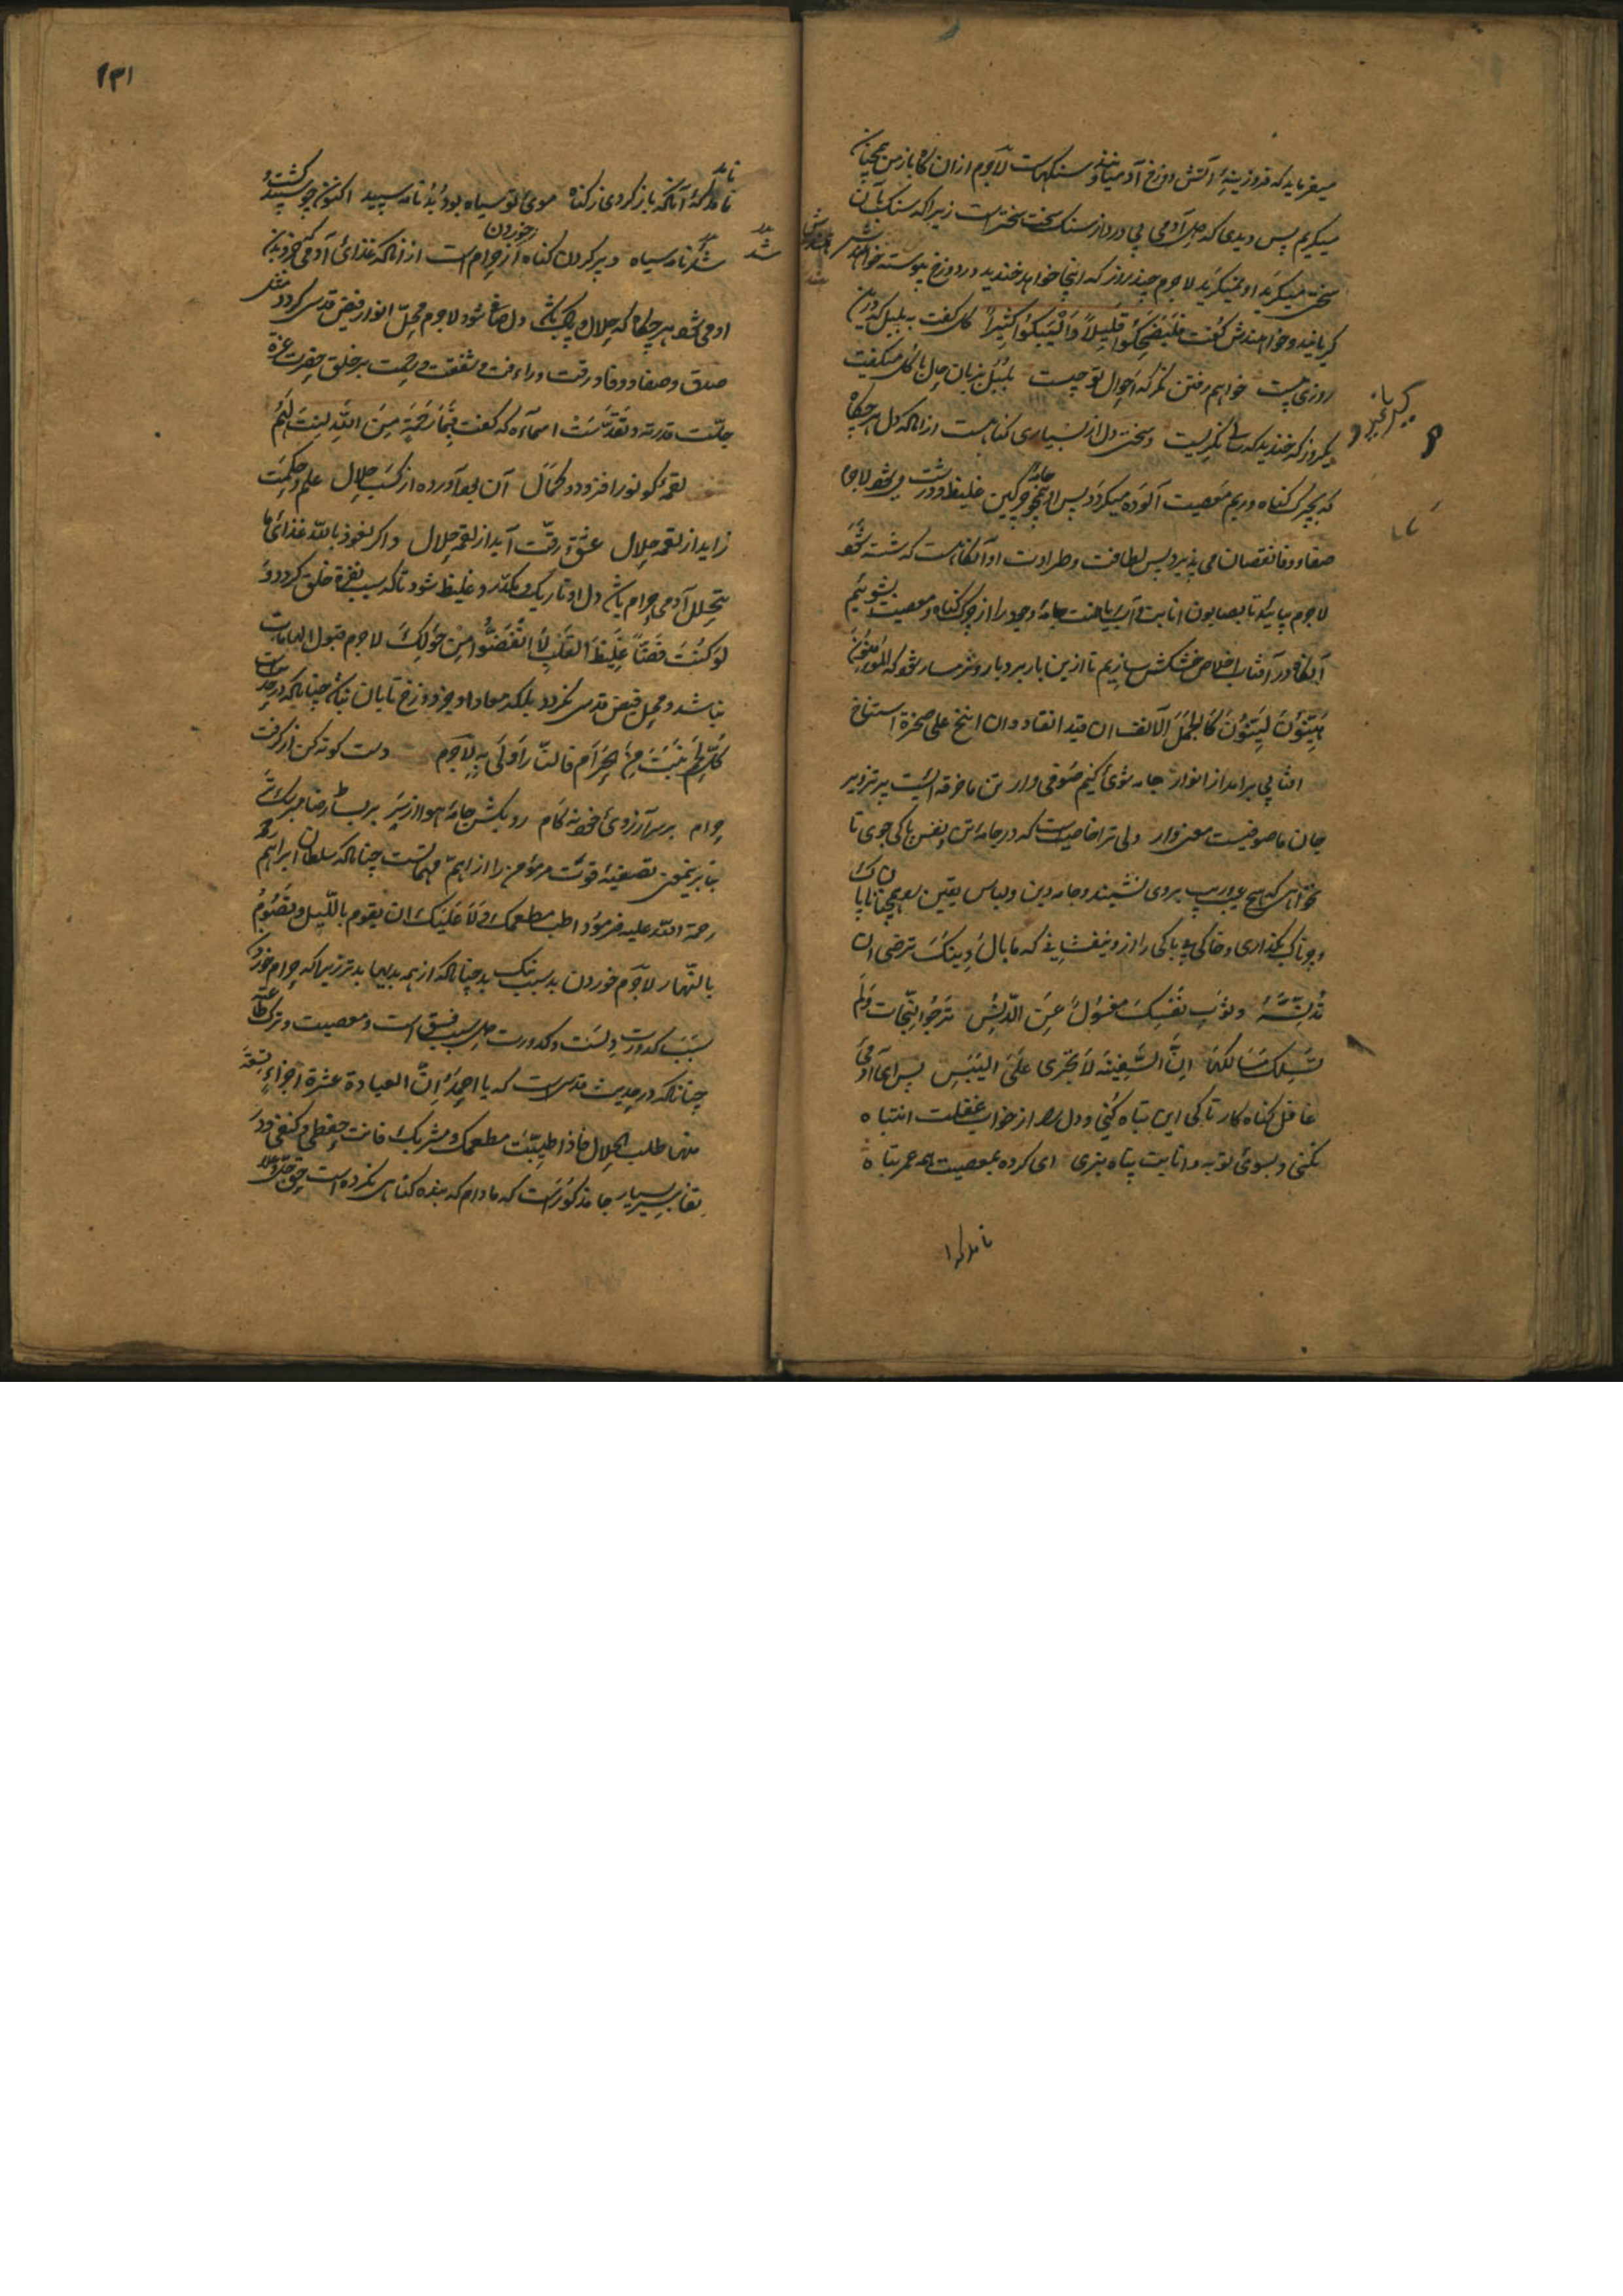 میفرماید که فروزینهٔ آتش دوزخ آدمیانند و سنگهاست لاجرم از ان گاه باز من همچنان
میگریم پس دیدی که دل آدمی بی درد از سنگ سخت سختر است زیرا که سنگ بآن
سختی میگرید او نمیگرید لاجرم چند روز که اینجا خواهد خندید در دوزخ پیوسته خواهد
گریانید و خواهندش گفت فلیضحکوا قلیلاً ولیبکوا کثیراً گل گفت به بلبل که درین
روزی بیست خواهم رفتن نگر که احوال تو چیست بلبل بزبان حال با گل میگفت
یکروز که خندید که سالی نگریست و سختی دل از بسیاری گناهست از انکه دل هرگاه
که بچرک گناه و ریم معصیت آلوده میگردد پس او همچو جامهٔ چرکین غلیظ و درشت میشود لاجرم
صفا و وفا نقصان می پذیرد پس لطافت و طراوت او آنگاهست که شسته شود
لاجرم بیائید تا بصابون انابت و آب ریاضت جامهٔ وجود را از چرک گناه و معصیت بشوییم
آنگاه در آفتاب اخلاص خشکش سازیم تا ازین بار بردبار و نرمسار شود که المؤمنون
هینون لینون کالجمل الانف ان قید انقاد و ان انیخ علی صخرة استناخ
افتابی برامد از انوار جامه شوئی کنیم صوفی وار تن ما خرقه ایست پر تزویر
جان ما صوفیست معنی وار ولی ترا خاصیت است که در جامهٔ تن و نفس پاکی جوی تا
نخواهی که هیچ عیب بروی نشیند و جامه دین و لباس یقین را همچنان ناپاک
و چرناک بگذاری و خاکی بی باکی را از و نیفشانی که ما بال دینک ترضی ان
تدنسه و ثوب نفسک مغسول عن الدنس ترجوا النجات و لم
تسلک مسالکها ان السفینة لا تجری علی الیبس پس ای آدمی
غافل گناه کار تا کی این تباه کنی و دل را از خواب غفلت انتباه
نکنی و بسوی توبه و انابت پناه نبری ای کرده بمعصیت همه عمر تباه
نامد گه ا
۱۳۱
نامد گهٔ آنکه باز گردی ز گناه موی تو سیاه بود بد نامه سپید اکنون چو سپید گشت
شد نامه سیاه و پر کردن گناه از حرام خوردن است از انکه غذای آدمی جزو بدن
او می شود هر گاه که حلال و پاک باشد دل صافی شود لاجرم محل انوار فیض قدسی گردد مثل
صدق و صفا و وفا و رقت و راءفت و شفقت و رحمت بر خلق حضرت عزة
جلت قدرته و تقدست اسمآءه که گفت فبما رحمة من الله لنت لهم
لقمهٔ کو نور افزود و کمال آن بود آورده از کسب حلال علم و حکمت
زاید از لقمهٔ حلال عشق و رقت آید از لقمه حلال و اگر نعوذ بالله غذای ما
یتحلل آدمی حرام باشد دل او تاریک و مکدر و غلیظ شود تا که سبب نفرة خلق گردد و
لو کنت فضاً غلیظ القلب لا انفضوا من حولک لاجرم قبول الهامات
نباشد و محل فیض قدسی نگردد بلکه معاد او جز دوزخ تابان نباشد چنانکه در حدیث
کل لحم ینبت من الحرام فالنار اولی به لاجرم دست کوته کن از گرفت
حرام بر سر آرزوی خود نه گام رو بکش جامهٔ هوا از سر بر بساط رضا
بنا برین معنی تصفیهٔ قوت مر مؤمن را از اهم مهماتست چنانکه سلطان ابراهیم
رحمة الله علیه فرمود اطب مطعمک و لا علیک ان یقوم باللیل و تصوم
بالنهار لاجرم خوردن بد سبب بد چنانکه از همه بدیها بدتر زیرا که حرام خوردن
سبب کدورت دلست و کدورت دل سبب فسق است و معصیت و ترک طاعت
چنانکه در حدیث قدسی است که یا احمد ان العبادة عشرة اجزاء تسعة
منها طلب الحلال فاذا طیبت مطعمک و مشربک فانت فی حفظی و کنفی و در
تفاسیر بسیار جا مذکورست که مادام که بنده گناهی نکرده است حق جل و علا